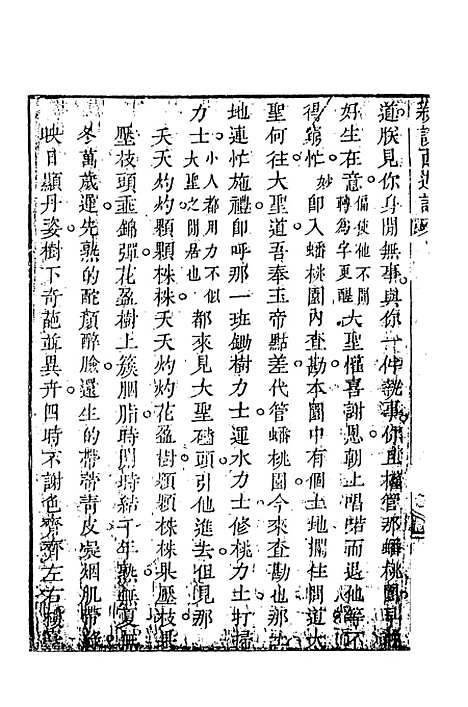 新說西遊記
道朕見你身閒無事與你一件執事你且權管那蟠桃園
好生在意偏使他不閒轉為字更醒大聖懽喜謝恩朝上唱喏而退他等不
得窮忙妙即入蟠桃園內查勘本園中有個土地攔住問道大
聖何往大聖道吾奉玉帝點差代管蟠桃園今來查勘也那土
地連忙施禮即呼那一班鋤樹力士運水力士修桃力士打掃
力士小人都用力不似大聖之閒居也都來見大聖磕頭引他進去但見那
夭夭灼灼顆顆株株夭夭灼灼花盈樹顆顆株株果壓枝果
壓枝頭垂錦彈花盈樹上簇胭脂時開時結千年熟無夏無
冬萬歲遲先熟的酡顏醉臉還生的帶蒂青皮凝烟肌帶綠
映日顯丹姿樹下奇葩並異卉四時不謝色齊齊左右樓